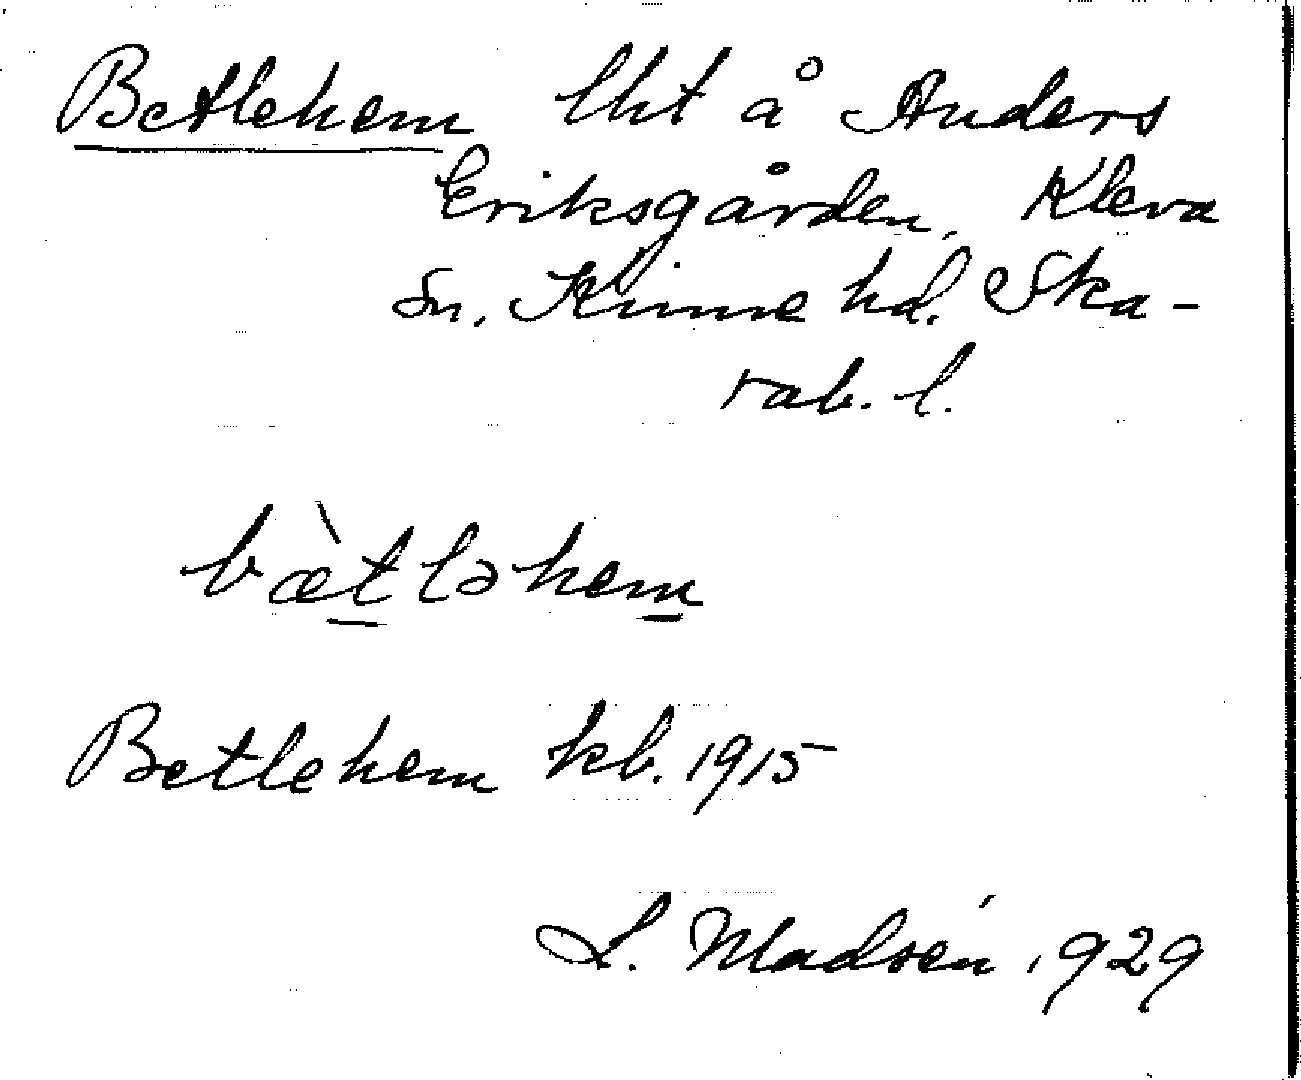 Betlehem lht å Anders
Eriksgården, Kleva
sn. Kinne hd. Ska-
rab. l.
bæ̀tləhem
Betlehem kb. 1915
L. Madsén 1929